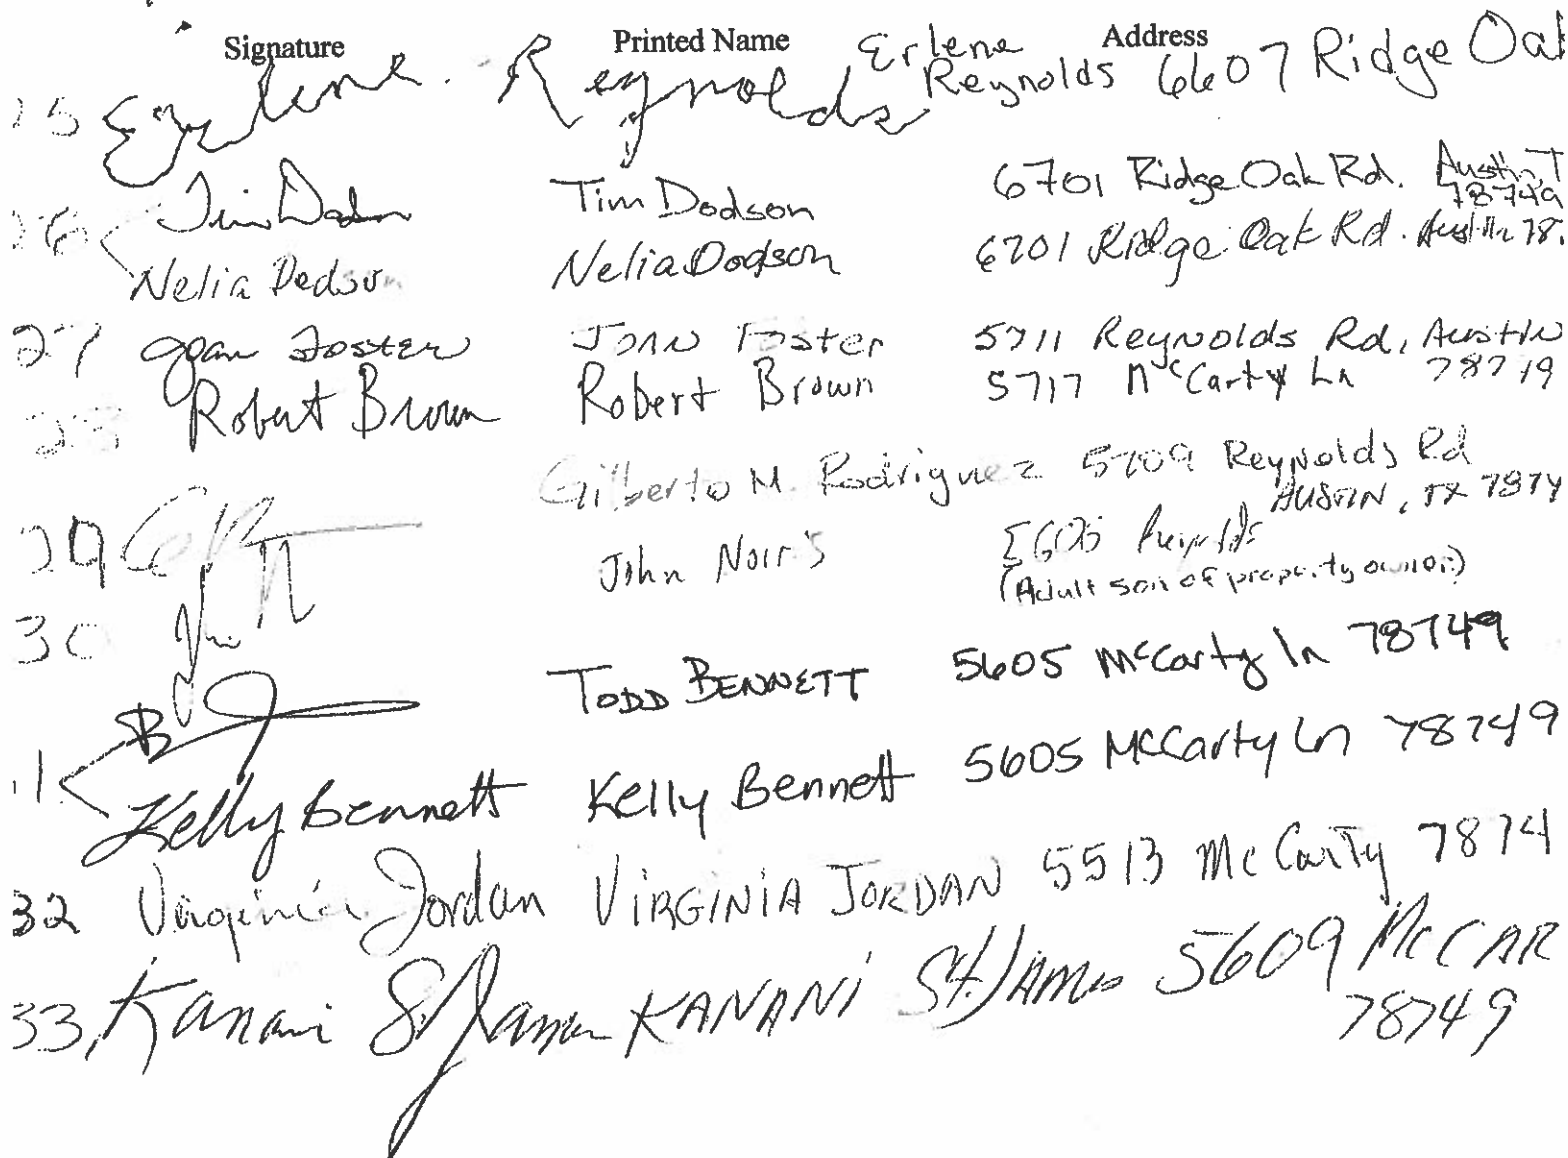 Signature Printed Name Address
25 Erlene Reynolds Erlene Reynolds 6607 Ridge Oak
26 Tim Dodson Tim Dodson 6701 Ridge Oak Rd. Austin, T 78749
Nelia Dodson Nelia Dodson 6701 Ridge Oak Rd. Austin 78
27 Joan Foster Joan Foster 5711 Reynolds Rd, Austin
28 Robert Brown Robert Brown 5717 McCarty Ln 78749
29 Gilberto M. Rodriguez 5709 Reynolds Rd
AUSTIN, TX 7874
30 John Norris Reynolds
(Adult son of property owner)
TODD BENNETT 5605 McCarty ln 78749
Kelly Bennett Kelly Bennett 5605 McCarty Ln 78749
32 Virginia Jordan VIRGINIA JORDAN 5513 McCarty 7874
33, Kanani St. James KANANI St. JAMES 5609 McCAR
78749